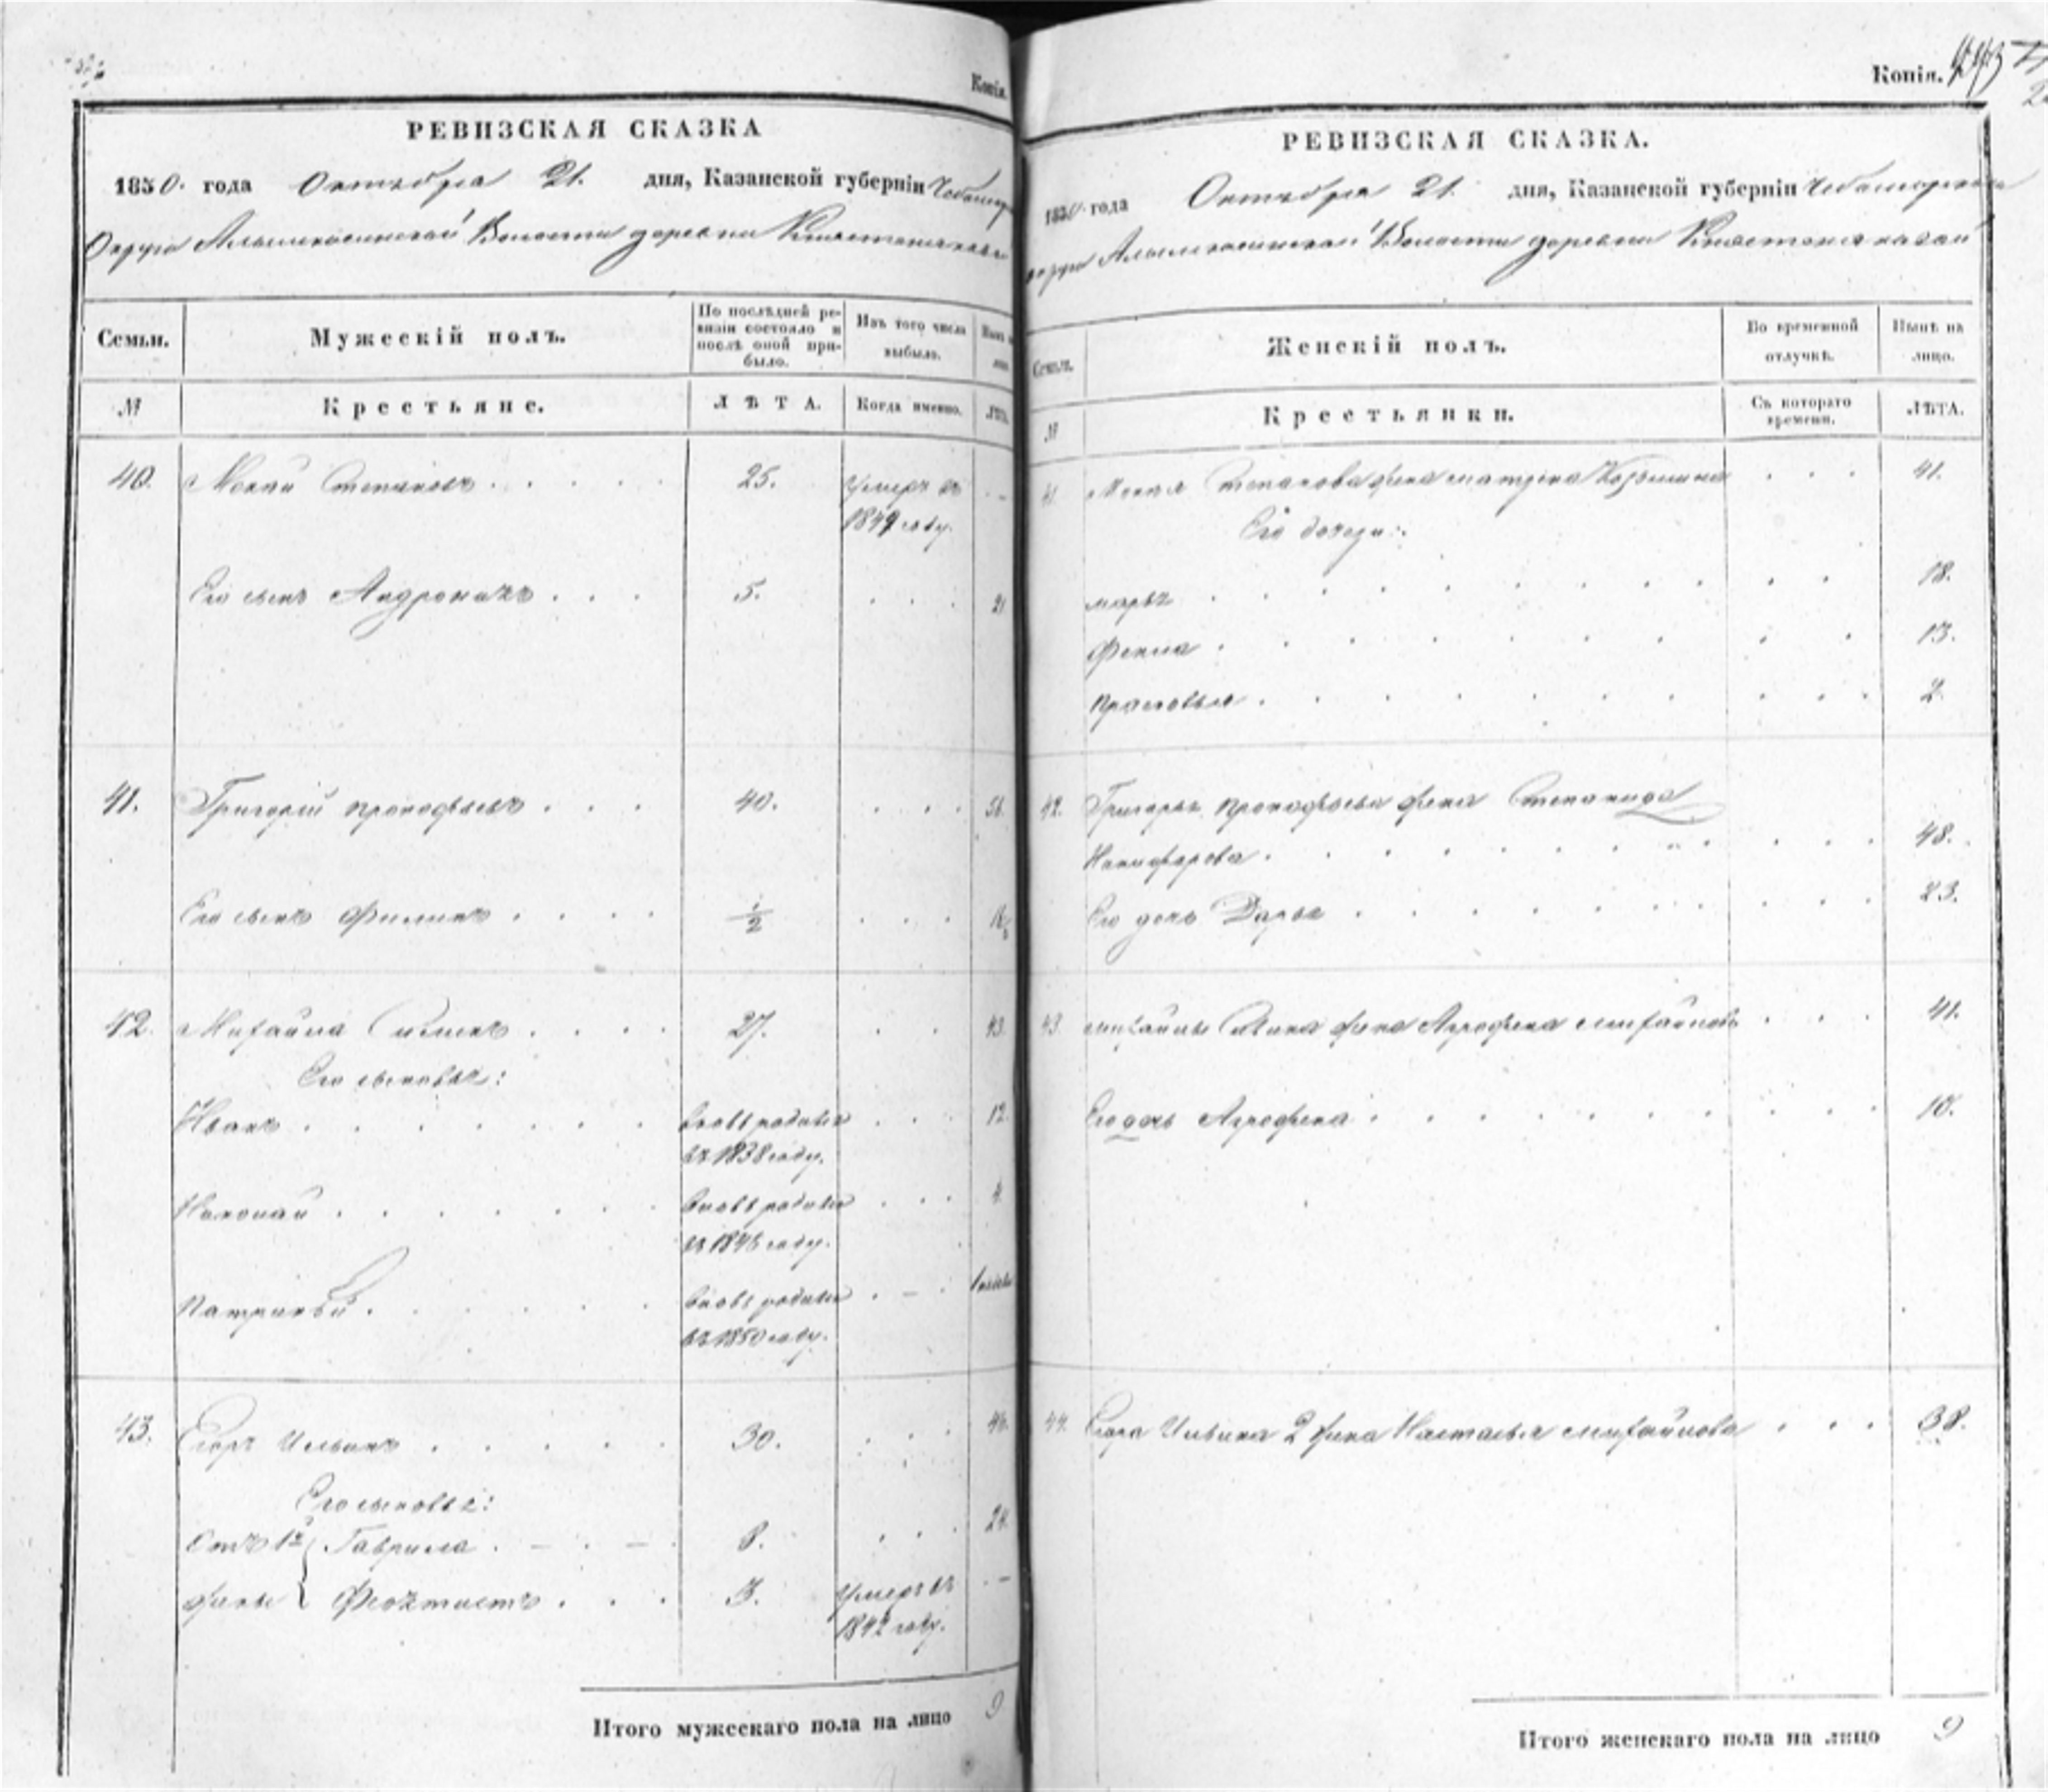 Копія.
РЕВИЗСКАЯ СКАЗКА
1850. года Октября 21. дня, Казанской губерніи
Округа Волости деревни
Семьи. Мужескій полъ. По послѣдней ревизіи состояло и послѣ оной прибыло. Изъ того числа выбыло.
№ Крестьяне. ЛѢТА. Когда именно.
40. Мокей Степановъ 25. Умеръ въ
1849 году.
Его сынъ Андроникъ 5. 21
41. Григорій Прокофьевъ 40. 56.
Его сынъ Филипъ 1/2
42. Михайла 27. 43.
Его сыновья:
Иванъ вновь родился 12.
въ 1838 году.
Николай вновь родился 4.
въ 1846 году.
Патрикѣй вновь родился
въ 1850 году.
43. Егоръ Ильинъ 30. 46.
Его сыновья:
Отъ 1й Гаврила 8. 24.
жены Феоктистъ 3. Умеръ въ
1842 году.
Итого мужескаго пола на лицо 9
Копія.
РЕВИЗСКАЯ СКАЗКА.
1850 года Октября 21. дня, Казанской губерніи
округа Волости деревни
Семьи. Женскій полъ. Во временной отлучкѣ. Нынѣ на лицо.
№ Крестьянки. Съ котораго времени. ЛѢТА.
41. Мокея Степанова жена Матрена Козьмина 41.
Его дочери:
Марья 18.
Фекла 13.
Прасковья 2.
42. Григорья Прокофьева жена Степанида
Никифорова 48.
Его дочь Дарья 23.
43. Михайлы жена Агрофена Михайлова 41.
Его дочь Агрофена 10.
44. Егора Ильина 2 жена Настасья Михайлова 38.
Итого женскаго пола на лицо 9